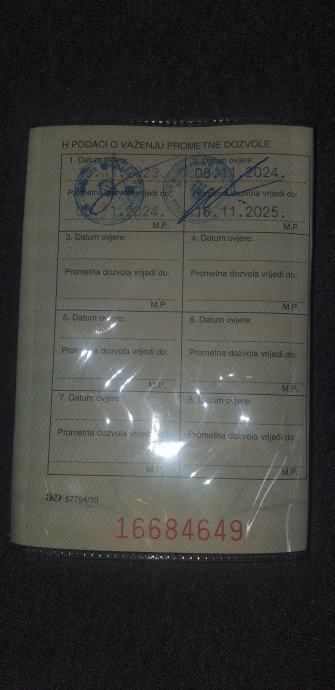 H PODACI O VAŽENJU PROMETNE DOZVOLE
1. Datum ovjere: 2. Datum ovjere:
.11.2023. 08.11.2024.
Prometna dozvola vrijedi do: Prometna dozvola vrijedi do:
.11.2024. 16.11.2025.
M.P. M.P.
3. Datum ovjere: 4. Datum ovjere:
Prometna dozvola vrijedi do: Prometna dozvola vrijedi do:
M.P. M.P.
5. Datum ovjere: 6. Datum ovjere:
Prometna dozvola vrijedi do: Prometna dozvola vrijedi do:
M.P. M.P.
7. Datum ovjere: 8. Datum ovjere:
Prometna dozvola vrijedi do: Prometna dozvola vrijedi do:
M.P. M.P.
AKD 57794/10
16684649